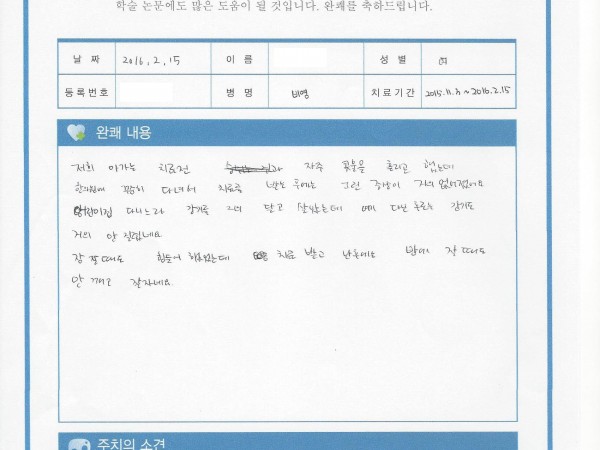 학술 논문에도 많은 도움이 될 것입니다. 완쾌를 축하드립니다.
날 짜 2016. 2. 15 이 름 성 별 여
등록번호 병 명 비염 치료기간 2015.11. ~ 2016.2.15
완쾌 내용
저희 아가는 치료전 자주 콧물을 흘리고 했는데
한의원에 꾸준히 다녀서 치료를 받은 후에는 그런 증상이 거의 없어졌어요
어린이집 다니느라 감기를 거의 달고 살았는데 여기 다닌 후로는 감기도
거의 안 걸렸네요
잠 잘때도 힘들어 했었는데 치료 받고 난후에는 밤에 잘 때도
안 깨고 잘자네요
주치의 소견